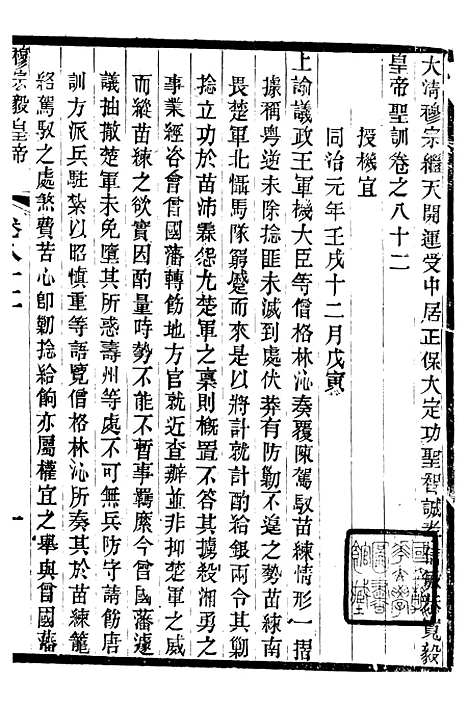 大清穆宗繼天開運受中居正保大定功聖智誠孝信敏恭寬毅
皇帝聖訓卷之八十二
授機宜
同治元年壬戌十二月戊寅
上諭議政王軍機大臣等僧格林沁奏覆陳駕馭苗練情形一摺
據稱粵逆未除捻匪未滅到處伏莽有防勦不遑之勢苗練南
畏楚軍北懾馬隊窮蹙而來是以將計就計酌給銀兩令其擊
捻立功於苗沛霖怨尤楚軍之稟則概置不答其擄殺湘勇之
事業經咨會曾國藩轉飭地方官就近查辦並非抑楚軍之威
而縱苗練之欲實因酌量時勢不能不暫事羈縻今曾國藩遽
議抽撤楚軍未免墮其所惑壽州等處不可無兵防守請飭唐
訓方派兵駐紮以昭慎重等語覽僧格林沁所奏其於苗練籠
絡駕馭之處煞費苦心卽勦捻給餉亦屬權宜之舉與曾國藩
穆宗毅皇帝
卷八十二
一
國立
大學
圖書
館藏